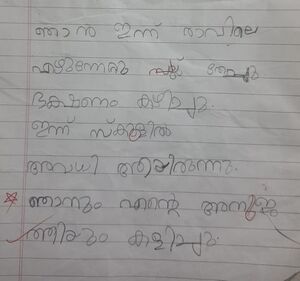 ഞാൻ ഇന്ന് രാവിലെ
എഴുന്നേറ്റു പല്ല് തേച്ചു
ഭക്ഷണം കഴിച്ചു.
ഇന്ന് സ്കൂളിൽ
അവധി ആയിരുന്നു.
ഞാനും എന്റെ അനുജ
ത്തിയും കളിച്ചു.